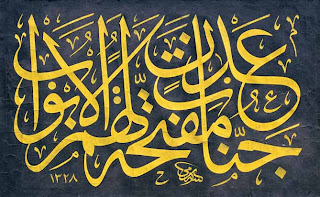 جنّات عدن مفتّحة لهم الأبواب
١٣٢٨